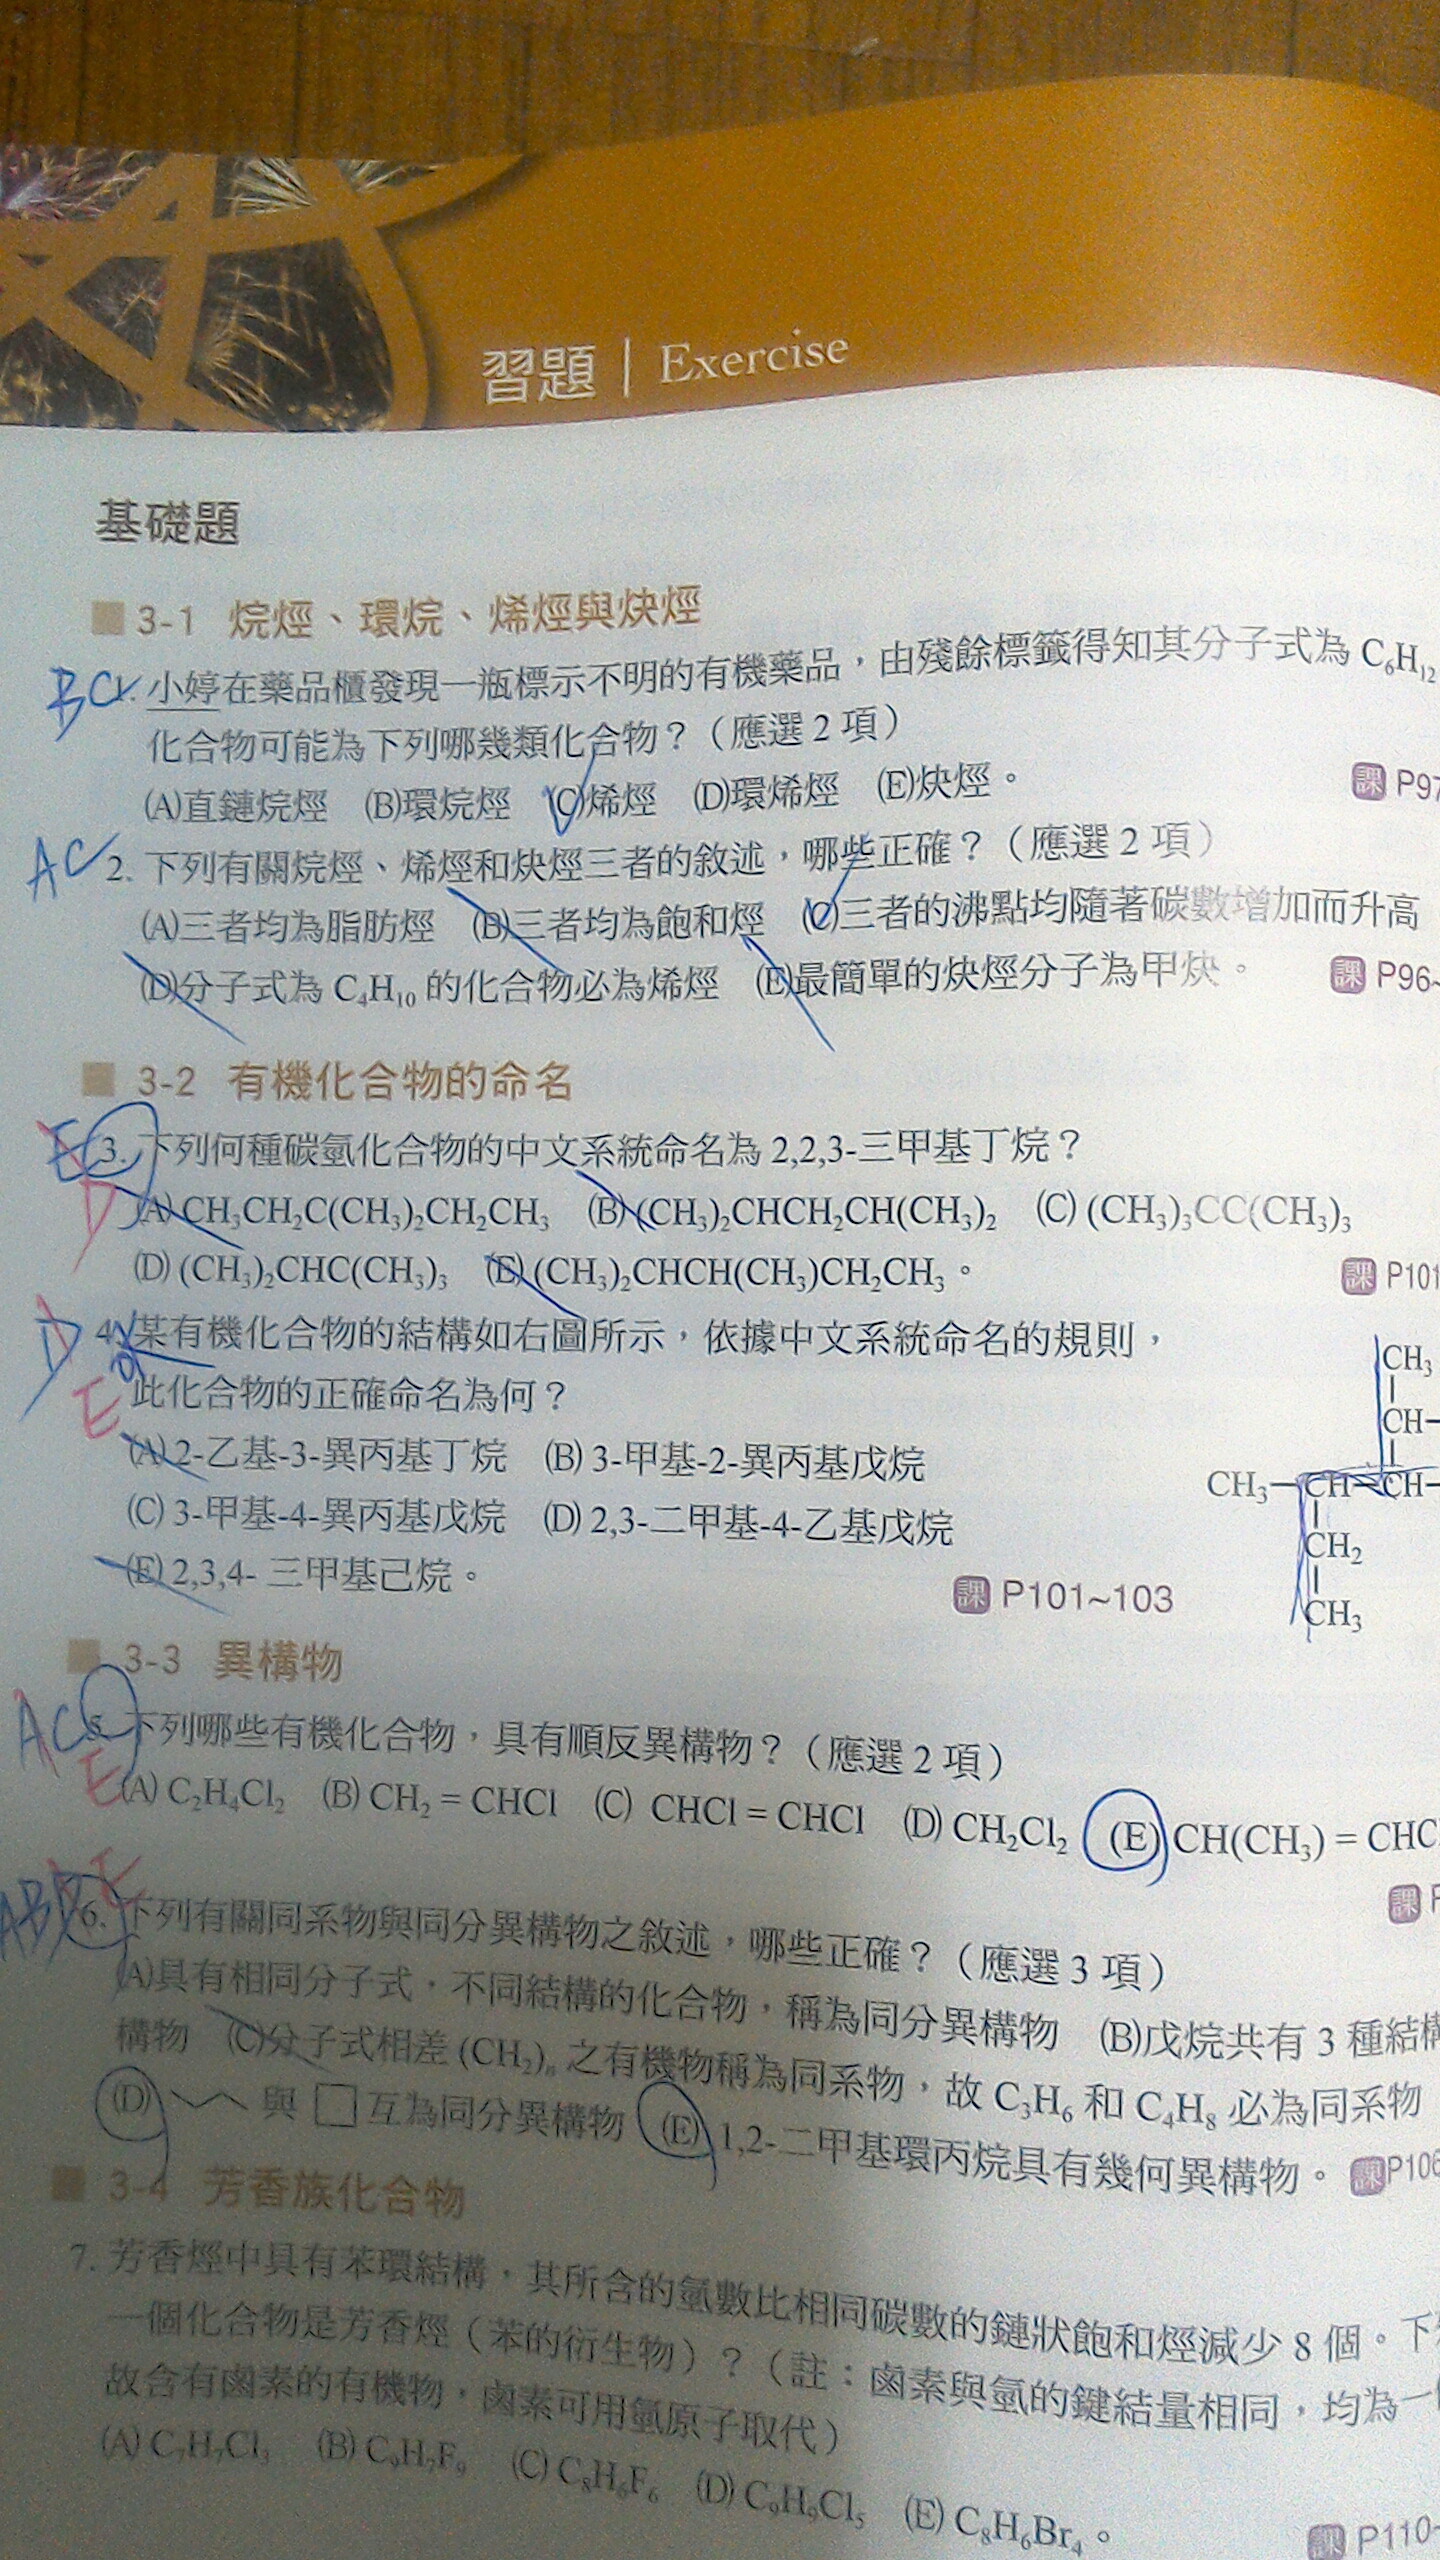 習題 | Exercise
基礎題
3-1 烷烴、環烷、烯烴與炔烴
BC 1. 小婷在藥品櫃發現一瓶標示不明的有機藥品，由殘餘標籤得知其分子式為 C₆H₁₂
化合物可能為下列哪幾類化合物？（應選 2 項）
(A)直鏈烷烴 (B)環烷烴 (C)烯烴 (D)環烯烴 (E)炔烴。
課 P97
AC 2. 下列有關烷烴、烯烴和炔烴三者的敘述，哪些正確？（應選 2 項）
(A)三者均為脂肪烴 (B)三者均為飽和烴 (C)三者的沸點均隨著碳數增加而升高
(D)分子式為 C₄H₁₀ 的化合物必為烯烴 (E)最簡單的炔烴分子為甲炔。 課 P96~
3-2 有機化合物的命名
E 3. 下列何種碳氫化合物的中文系統命名為 2,2,3-三甲基丁烷？
D (A) CH₃CH₂C(CH₃)₂CH₂CH₃ (B) (CH₃)₂CHCH₂CH(CH₃)₂ (C) (CH₃)₃CC(CH₃)₃
(D) (CH₃)₂CHC(CH₃)₃ (E) (CH₃)₂CHCH(CH₃)CH₂CH₃。 課 P101
D 4. 某有機化合物的結構如右圖所示，依據中文系統命名的規則，
此化合物的正確命名為何？
E
(A) 2-乙基-3-異丙基丁烷 (B) 3-甲基-2-異丙基戊烷
(C) 3-甲基-4-異丙基戊烷 (D) 2,3-二甲基-4-乙基戊烷
(E) 2,3,4- 三甲基己烷。 課 P101~103
CH₃
CH–
CH₃–CH–CH–
CH₂
CH₃
3-3 異構物
AC 5. 下列哪些有機化合物，具有順反異構物？（應選 2 項）
E (A) C₂H₄Cl₂ (B) CH₂ = CHCl (C) CHCl = CHCl (D) CH₂Cl₂ (E) CH(CH₃) = CHC
課
6. 下列有關同系物與同分異構物之敘述，哪些正確？（應選 3 項）
(A)具有相同分子式，不同結構的化合物，稱為同分異構物 (B)戊烷共有 3 種結構
構物 (C)分子式相差 (CH₂)ₙ 之有機物稱為同系物，故 C₃H₆ 和 C₄H₈ 必為同系物
(D) 與 互為同分異構物 (E) 1,2-二甲基環丙烷具有幾何異構物。 課 P106
3-4 芳香族化合物
7. 芳香烴中具有苯環結構，其所含的氫數比相同碳數的鏈狀飽和烴減少 8 個。下
一個化合物是芳香烴（苯的衍生物）？（註：鹵素與氫的鍵結量相同，均為一
故含有鹵素的有機物，鹵素可用氫原子取代）
(A) C₇H₇Cl₃ (B) C₉H₇F₉ (C) C₈H₆F₆ (D) C₉H₉Cl₅ (E) C₈H₆Br₄。
課 P110~